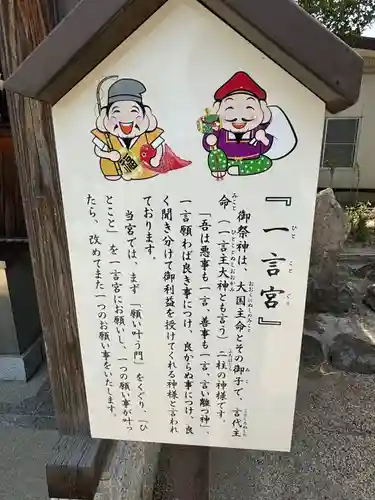 『一言宮』
ひとことぐう
御祭神は、大国主命とその御子で、言代主
命（一言主大神とも言う）二柱の神様です。
「吾は悪事も一言、善事も一言、言い離つ神」、
一言願わば良き事につけ、良からぬ事につけ、良
く聞き分けて御利益を授けてくれる神様と言われ
ております。
当宮では、まず「願い叶う門」をくぐり、「ひ
とこと」を一言宮にお願いし、一つの願い事が叶っ
たら、改めてまた一つのお願い事をいたします。